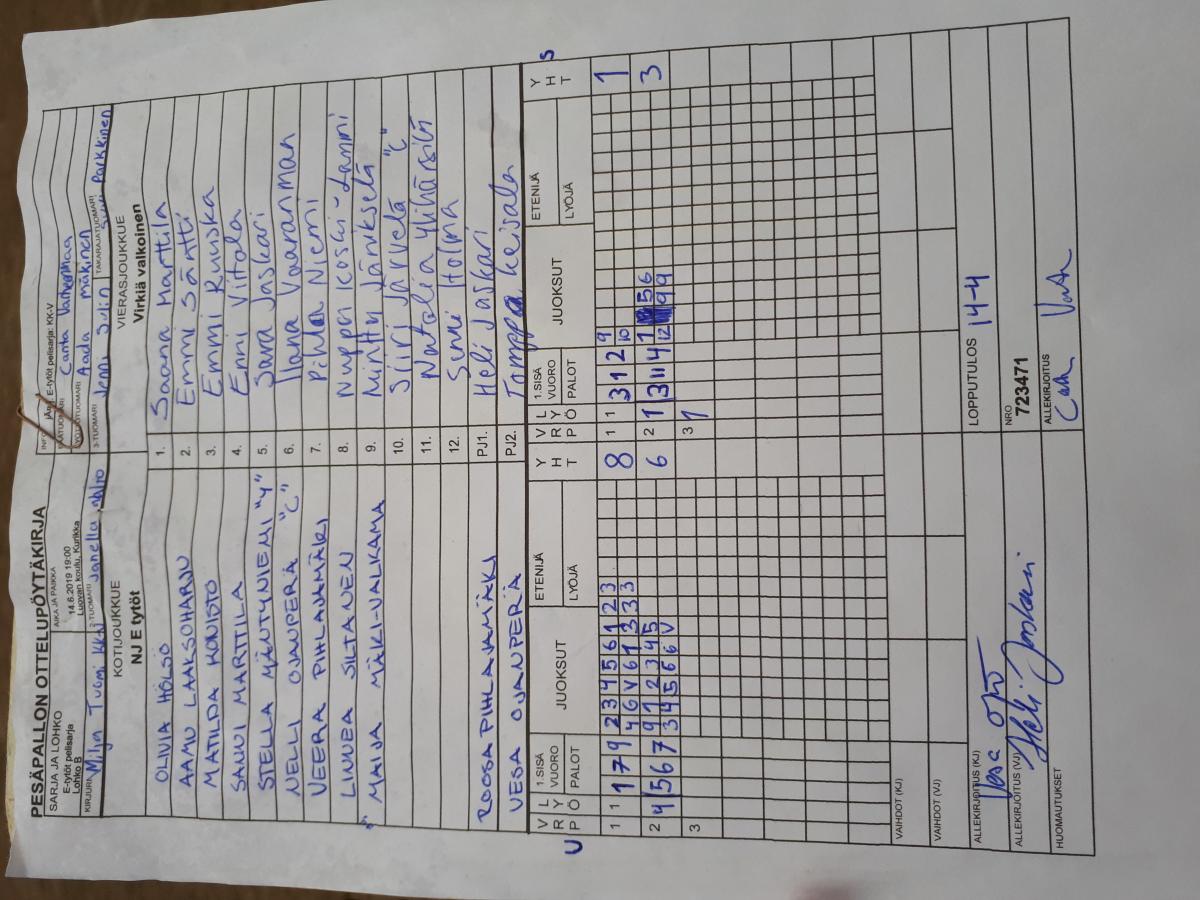 PESÄPALLON OTTELUPÖYTÄKIRJA
SARJA JA LOHKO
E-tytöt pelisarja
Lohko B
AIKA JA PAIKKA
14.6.2019 19:00
Luovan koulu, Kurikka
E-tytöt pelisarja: KK-V
KIRJURI Miljn Tuomi KKV
2-TUOMARI Janella
Aada mäkinen
3-TUOMARI Jenni Julin
TAKARAJATUOMARI Parkkinen
KOTIJOUKKUE
NJ E tytöt
VIERASJOUKKUE
Virkiä valkoinen
OLIVIA HÖLSÖ 1. Saana Marttila
AAMU LAAKSOHARJU 2. Emmi Sätti
MATILDA KONISTO 3. Emmi Ruuska
SANNI MARTTILA 4. Enni Viitala
STELLA MÄNTYNIEMI "Y" 5. Sara Jaskari
NELLI OJANPERÄ "C" 6. Ilana Vaaranman
VEERA PIHLAJAMÄKI 7. Pihla Niemi
LINNEA SILTANEN 8. Nuppu Koski-Lammi
MAIJA MÄKI-VALKAMA 9. Minttu Jänikselä
10. Siiri Järvelä "C"
11. Natalia Ylihärsilä
12. Sinni Holma
ROOSA PIHLAJAMÄKI PJ1. Heli Jaskari
VESA OJANPERÄ PJ2. Keisala
U VRP LYÖ 1.SISÄ VUORO PALOT JUOKSUT ETENIJÄ LYÖJÄ YHT VRP LYÖ 1.SISÄ VUORO PALOT JUOKSUT ETENIJÄ LYÖJÄ YHT S
1 1 1 7 9 2 3 4 5 6 1 2 3 8 1 1 3 12 9 1
4 6 V 6 1 3 3 3 10
2 4 5 6 7 9 1 2 3 4 5 6 2 1 3 11 4 1 5 6 3
3 4 5 6 6 V 12 9 9
3 3 1
VAIHDOT (KJ)
VAIHDOT (VJ)
ALLEKIRJOITUS (KJ) Vesa
LOPPUTULOS 14-4
ALLEKIRJOITUS (VJ) Heli Jaskari
NRO
723471
HUOMAUTUKSET
ALLEKIRJOITUS